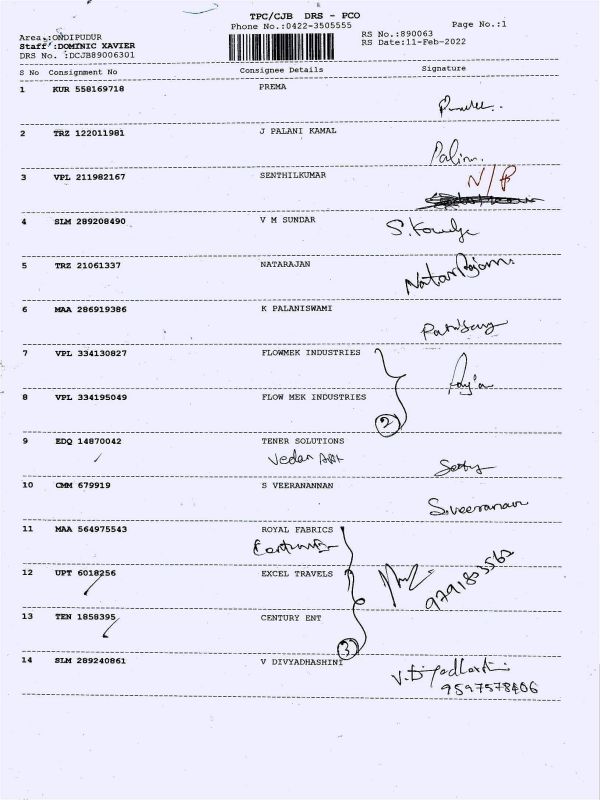 TPC/CJB DRS - PCO
Phone No.:0422-3505555
Page No.:1
Area :ONDIPUDUR
Staff :DOMINIC XAVIER
DRS No. :DCJB89006301
RS No.:890063
RS Date:11-Feb-2022
S No Consignment No Consignee Details Signature
1 KUR 558169718 PREMA
2 TRZ 122011981 J PALANI KAMAL
3 VPL 211982167 SENTHILKUMAR N/P
4 SLM 289208490 V M SUNDAR
5 TRZ 21061337 NATARAJAN Natarajan.
6 MAA 286919386 K PALANISWAMI
7 VPL 334130827 FLOWMEK INDUSTRIES
8 VPL 334195049 FLOW MEK INDUSTRIES
2
9 EDQ 14870042 TENER SOLUTIONS
10 CMM 679919 S VEERANANNAN
S.Veeranan
11 MAA 564975543 ROYAL FABRICS
12 UPT 6018256 EXCEL TRAVELS
13 TEN 1858395 CENTURY ENT
3
14 SLM 289240861 V DIVYADHASHINI
9597578406